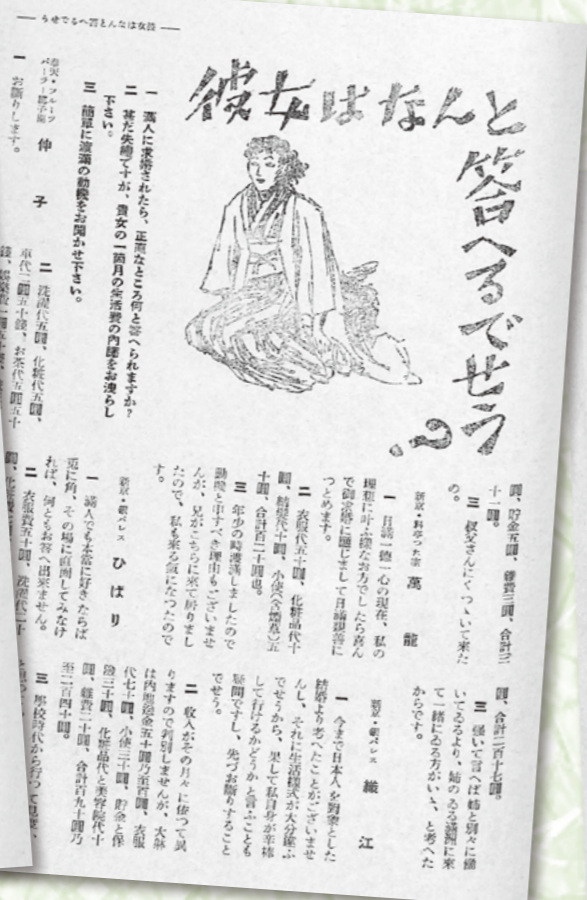 ── うせでるへ答とんなは女彼 ──
彼女はなんと
答へるでせう
?。
一 滿人に求婚されたら、正直なところ何と答へられますか?
二 甚だ失禮ですが、貴女の一箇月の生活費の內譯をお洩らし
下さい。
三 簡單に渡滿の動機をお聞かせ下さい。
奉天・フルーツ
パーラー
伸 子
一 お斷りします。
二 洗濯代五圓、化粧代五圓、
車代二圓五十錢、お茶代五圓五十
圓、貯金五圓、雜費三圓、合計三
十一圓。
三 叔父さんにくつついて來た
の。
萬 龍
一 日滿一德一心の現在、私の
理想に叶ふ樣なお方でしたら喜ん
で御求婚に應じまして日滿親善に
つとめます。
二 衣服代五十圓、化粧品代十
圓、結髮代十圓、小使へ(含煙草)五
十圓、合計百二十圓也。
三 年少の時渡滿しましたので
動機と申すべき理由もございませ
んが、兄がこちらに來て居りまし
たので、私も來る氣になつたので
す。
新京・銀パレス
ひばり
一 滿人でも本當に好きたらば
兎に角、その場に直面してみなけ
れば、何ともお答へ出來ません。
二 衣服費五十圓、洗濯代二十
圓、合計二百十七圓。
三 强いて言へば姉と別々に離
いてゐるより、姉のゐる滿洲に來
て一緖にゐる方がいゝ、と考へた
からです。
新京・銀パレス
織 江
一 今まで日本人を對象とした
結婚より考へたことがございませ
んし、それに生活樣式が大分違ふ
でせうから、果して私自身が辛棒
して行けるかどうかと言ふことも
疑問ですし、先づお斷りすること
でせう。
二 收入がその月々に依つて異
りますので判別しませんが、大體
は內地送金五十圓乃至百圓、衣服
代七十圓、小使三十圓、貯金と保
險三十圓、化粧品代と美容院代十
圓、雜費二十圓、合計百九十圓乃
至二百四十圓。
三 學校時代から行つて見度い